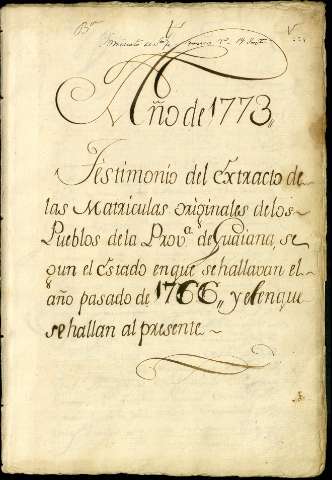 Año de 1773,,
Testimonio del Extracto de
las Matriculas originales de los
Pueblos de la Prov.ª de Guaiana, se
gun el Estado en que se hallavan el
año pasado de 1766,, y el en que
se hallan al presente